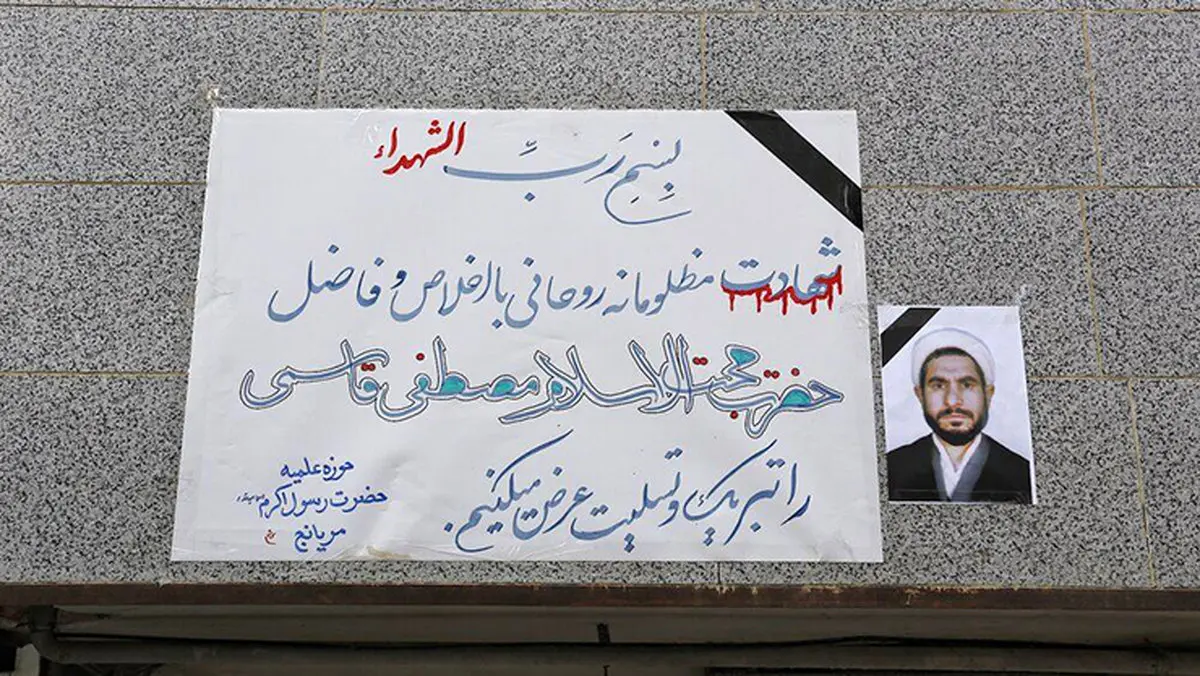 بِسْمِ رَبِّ الشهداء
شهادت مظلومانه روحانی بااخلاص و فاضل
حضرت حجت الاسلام مصطفی قاسمی
را تبریک و تسلیت عرض میکنیم.
حوزه علمیه
حضرت رسول اکرم
مریانج